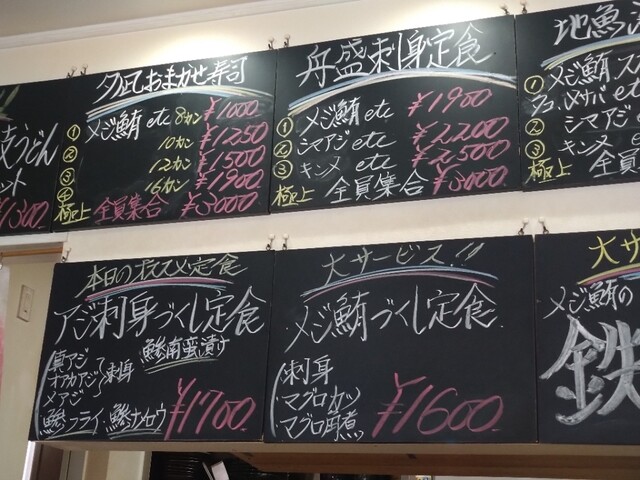 夕凪おまかせ寿司
① メジ鮪 etc 8カン ¥1000
② 10カン ¥1250
③ 12カン ¥1500
④ 16カン ¥1900
極上 全員集合 ¥3000
舟盛刺身定食
① メジ鮪 etc ¥1900
② シマアジ etc ¥2200
③ キンメ etc ¥2500
極上 全員集合 ¥3000
地魚
① メジ鮪
② シマアジ
③ キンメ
極上 全員
うどん
ット
¥1300
本日のオススメ定食
アジ刺身づくし定食
真アジ
オアカアジ 刺身
メアジ
鯵南蛮漬け
鯵フライ 鯵ナメロウ
¥1700
大サービス!!
メジ鮪づくし定食
刺身
マグロカツ
マグロ角煮
¥1600
大サ
メジ鮪の
鉄